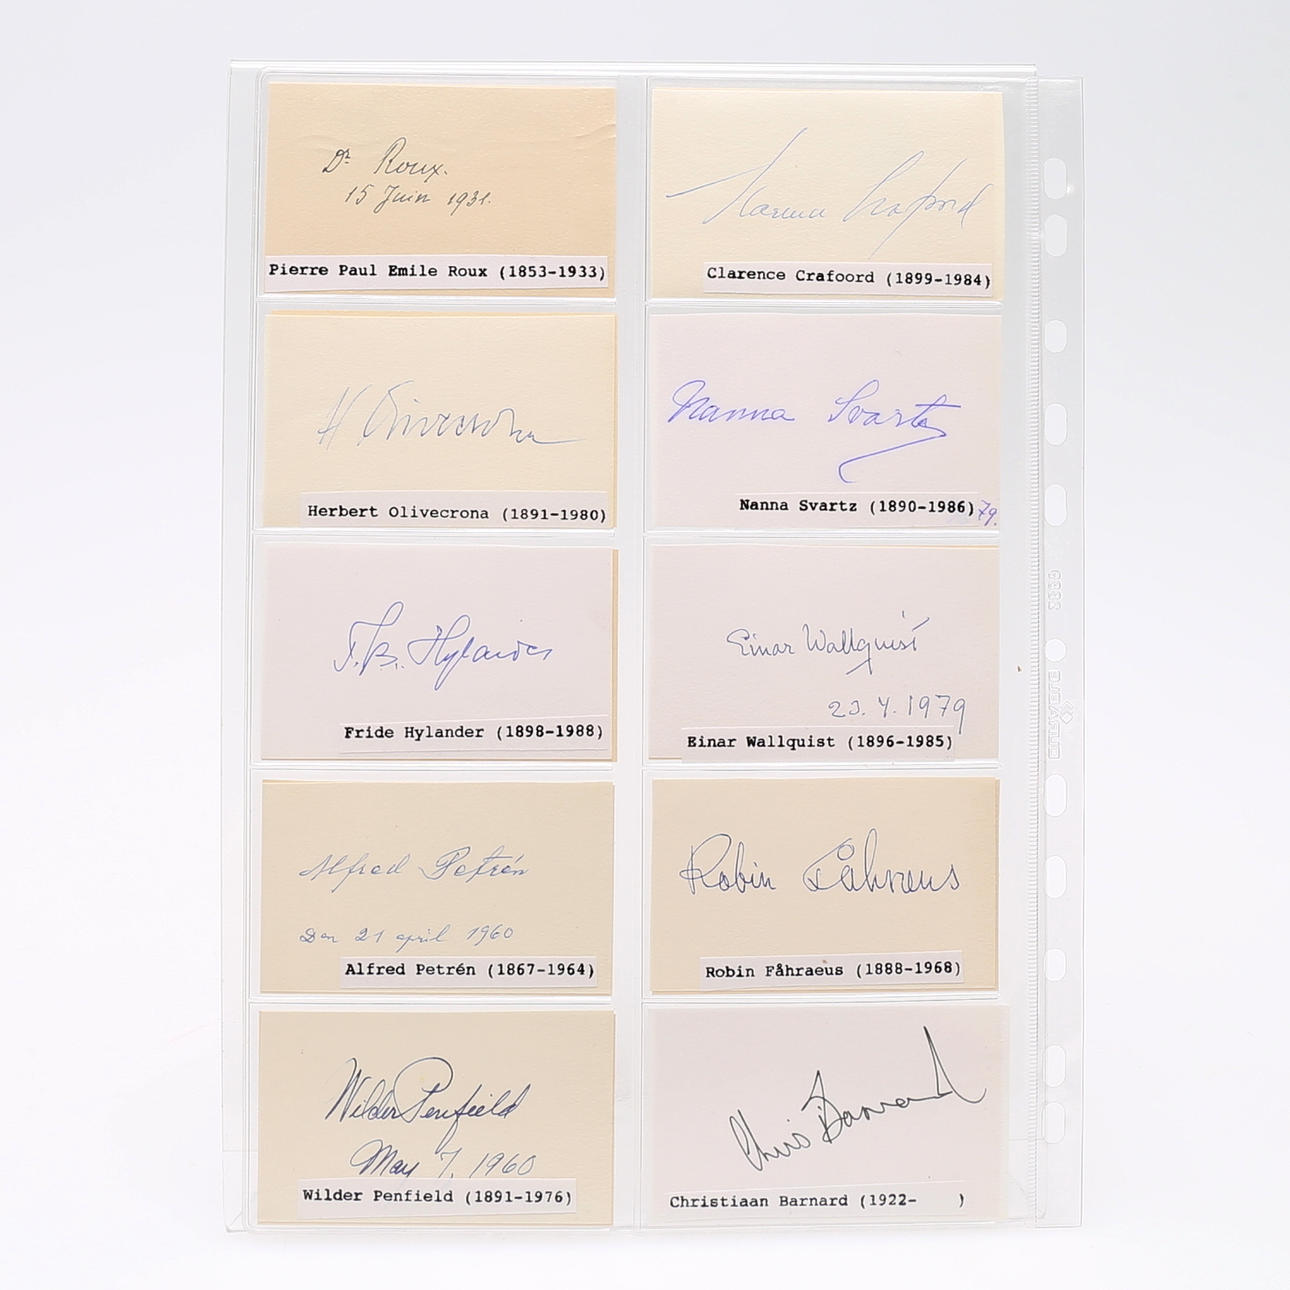 Dr Roux.
15 Juin 1931.
Pierre Paul Emile Roux (1853-1933)
Clarence Crafoord
Clarence Crafoord (1899-1984)
H. Olivecrona
Herbert Olivecrona (1891-1980)
Nanna Svartz
Nanna Svartz (1890-1986)
79.
F.B. Hylander
Fride Hylander (1898-1988)
Einar Wallquist
23.4.1979
Einar Wallquist (1896-1985)
Alfred Petrén
Den 21 april 1960
Alfred Petrén (1867-1964)
Robin Fåhraeus
Robin Fåhraeus (1888-1968)
Wilder Penfield
May 7, 1960
Wilder Penfield (1891-1976)
Chris Barnard
Christiaan Barnard (1922- )
DURABLE